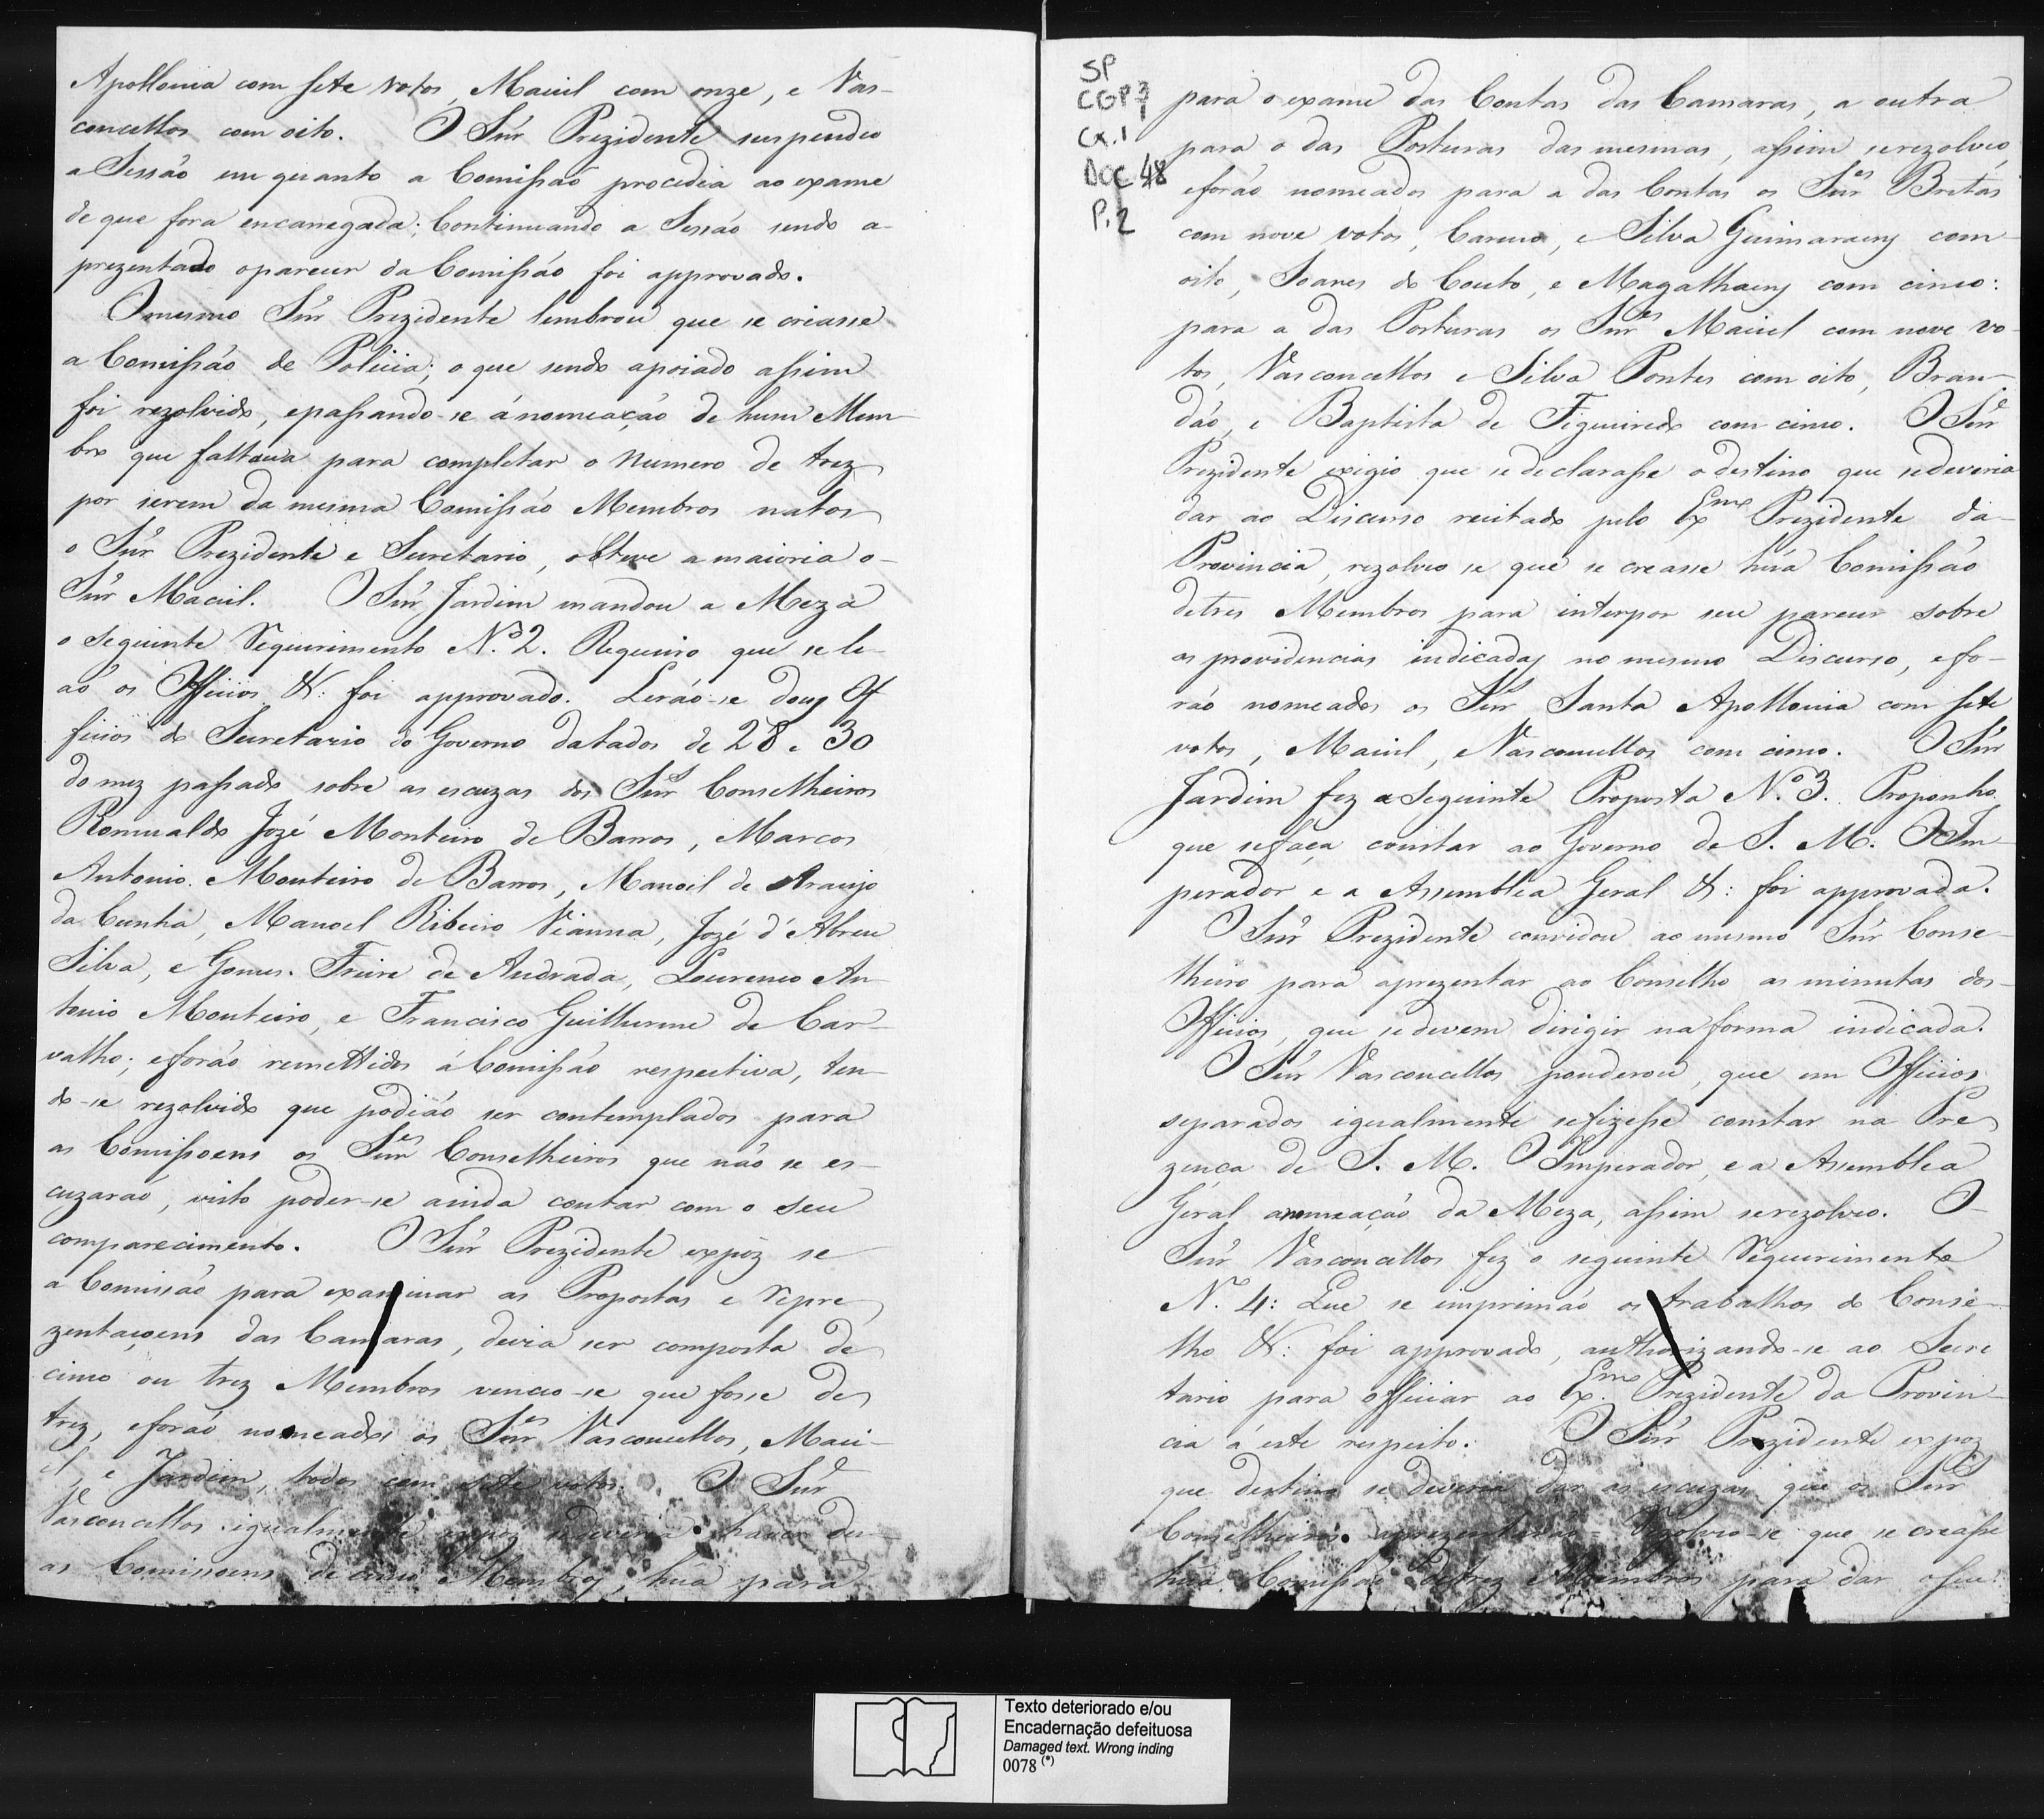 Apollonia com sete votos, Maciel com onze, e Vas-
concellos com oito. O Snr̃ Prezidente suspendeo
a Sessão em quanto a Comissaõ procedia ao exame
de que fora encarregada; Continuando a Sessão sendo a-
prezentado o parecer da Comissão foi approvado.
O mesmo Snr̃ Prezidente lembrou que se creasse
a Comissão de Policia; o que sendo apoiado assim
foi rezolvido, e passando-se á nomeação de hum Mem-
bro que faltava para completar o numero de trez
por serem da mesma Comissão Membros natos
o Snr̃ Prezidente e Secretario, obteve a maioria o-
Snr̃ Maciel. O Snr̃ Jardim mandou a Meza
o seguinte Requerimento N.º 2. Requeiro que se le-
aõ os Officios &: foi approvado. Lerão-se dous Of
ficios do Secretario do Governo datados de 28 e 30
do mez passado sobre as escuzas dos Snr̃es Conselheiros
Romualdo Jozé Monteiro de Barros, Marcos
Antonio Monteiro de Barros, Manoel de Araujo
da Cunha, Manoel Ribeiro Vianna, Jozé d'Abreu
Silva, e Gomes Freire de Andrada, Lourenço An
tonio Monteiro, e Francisco Guilherme de Car-
valho; e forão remettidos á Comissão respectiva, ten-
do-se rezolvido que podião ser contemplados para
as Comissoens os Snr̃es Conselheiros que não se es-
cuzaraõ, visto poder-se ainda contar com o seu
comparecimento. O Snr̃ Prezidente expôz se
a Comissão para examinar as Propostas e Repre
zentaçoens das Camaras, devia ser composta de
cinco ou trez Membros venceo-se que fosse de
trez, e forão nomeados os Snr̃es Vasconcellos, Maci-
el, e Jardim, todos com sete votos. O Snr̃
Vasconcellos igualmente expoz se deveria haver du-
as Comissoens de cinco Membros, hua para
SP
CGP 3
1
Cx. 1
DOC. 48
P. 2
para o exame das Contas das Camaras, a outra
para o das Posturas das mesmas, assim se rezolveo,
e forão nomeados para a das Contas os Snr̃es Bretas
com nove votos, Carneiro, e Silva Guimaraens com
oito, Soares do Couto, e Magalhaens com cinco:
para a das Posturas os Snr̃es Maciel com nove vo-
tos, Vasconcellos e Silva Pontes com oito, Bran-
dão, e Baptista de Figueiredo com cinco. O Snr̃
Prezidente exigio que se declarasse o destino que se deveria
dar ao Discurso recitado pelo Exmo Prezidente da-
Provincia, rezolveo se que se creasse húa Comissão
de tres Membros para interpor seu parecer sobre
as providencias indicadas no mesmo Discurso, e fo-
rão nomeados os Snr̃es Santa Apollonia com sete
votos, Maciel, e Vasconcellos com cinco. O Snr̃
Jardim fez a seguinte Proposta N.º 3. Proponho
que se faça constar ao Governo de S. M. O Im-
perador e a Assemblea Geral &: foi approvada.
O Snr̃ Prezidente convidou ao mesmo Snr̃ Conse-
lheiro para aprezentar ao Conselho as minutas dos-
Officios, que se devem dirigir na forma indicada.
O Snr̃ Vasconcellos ponderou, que em Officios
separados igualmente se fizesse constar na Pre
zença de S. M. O Imperador, e a Assemblea
Geral a nomeação da Meza, assim se rezolveo. O-
Snr̃ Vasconcellos fez o seguinte Requerimento
N.º 4: Que se imprimão os trabalhos do Conse-
lho &: foi approvado, authorizando-se ao Secre
tario para officiar ao Exmo. Prezidente da Provin-
cia á este respeito. O Snr̃ Prezidente expoz
que destino se deveria dar as escuzas que os Snr̃es
Conselheiros aprezentarão Rezolveo-se que se creasse
húa Comissão de trez Membros para dar o seu
Texto deteriorado e/ou
Encadernação defeituosa
Damaged text. Wrong inding
0078 (*)